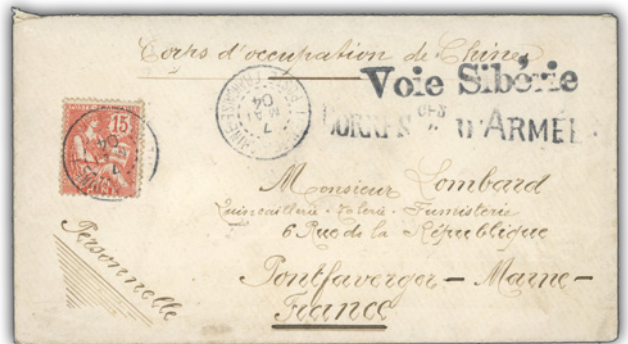 Corps d'occupation de Chine
Voie Sibérie
CORRES DES D'ARMÉE
7
MAI
04
15
7
04
Monsieur Lombard
Quincaillerie - Tolerie - Fumisterie
6 Rue de la République
Pontfaverger - Marne -
France
Personnelle